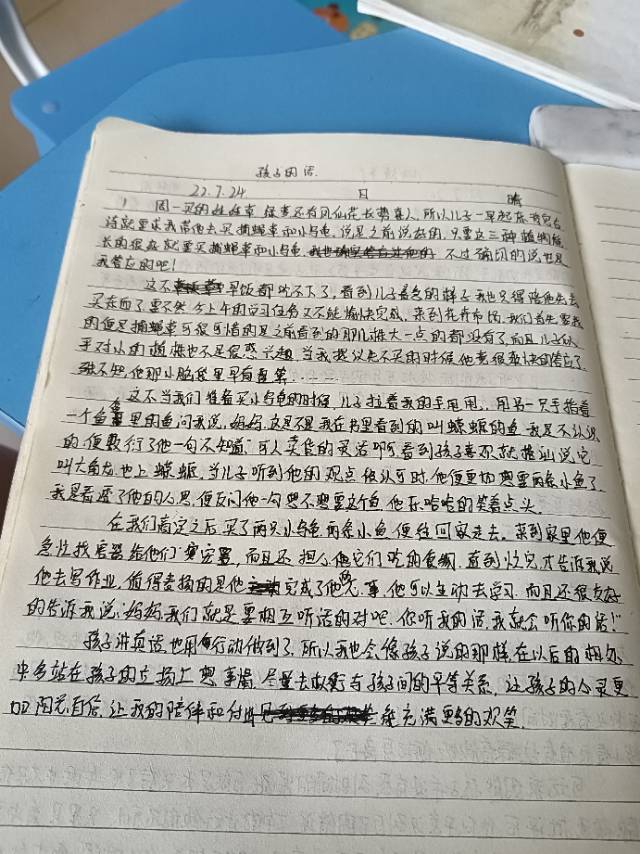 孩子的话.
22.7.24 日 晴
周一买的娃娃草 绿萝还有凤仙花长势喜人,所以儿子一早起床
就要求我带他去买捕蝇草和小乌龟,说是之前说好的,只要这三种植物能
长的很好就要买捕蝇草和小乌龟, 不过确切的说也是
我答应的吧!
这不 早饭都吃不下了,看到儿子着急的样子我也只得陪他出去
买东西了要不然今上午的学习任务又不能愉快完成,来到花卉市场,我们首先要买
的便是捕蝇草可很可惜的是之前看到的那几株大一点的都没有了,而且儿子似
乎对小的植株也不是很感兴趣,当我提议先不买的时候他竟很爽快的答应了
殊不知他那小脑袋里早有盘算......
这不当我们准备买小乌龟的时候,儿子拉着我的手甩甩,用另一只手指着
一个鱼缸里的鱼问我说,妈妈,这是不是我在书里看到的叫蝾螈的鱼,我是不认识
的,便敷衍了他一句不知道,可人卖货的灵活啊,看到孩子喜欢就接过说,它
叫六角龙也叫蝾螈,当儿子听到他的观点被认可时,他便更加想要两条小鱼了,
我是看透了他的心思,便反问他一句想不想要这个鱼,他乐哈哈的笑着点头.
在我们商定之后,买了两只小乌龟两条小鱼便往回家走去。来到家里他便
急忙找容器给他们安家,而且还担心他它们吃的食物,直到忙完才告诉我说
他去写作业,值得表扬的是他 完成了他的事,他可以主动去学习,而且还很友好
的告诉我说:“妈妈我们就是要相互听话的对吧,你听我的话,我就会听你的话!”
孩子讲英语也用行动做到了,所以我也会像孩子说的那样,在以后的相处
中多站在孩子的立场上想事情,尽量去权衡与孩子间的平等关系,让孩子的心灵更
加阳光自信,让我的陪伴和付出 能充满更多的欢笑.